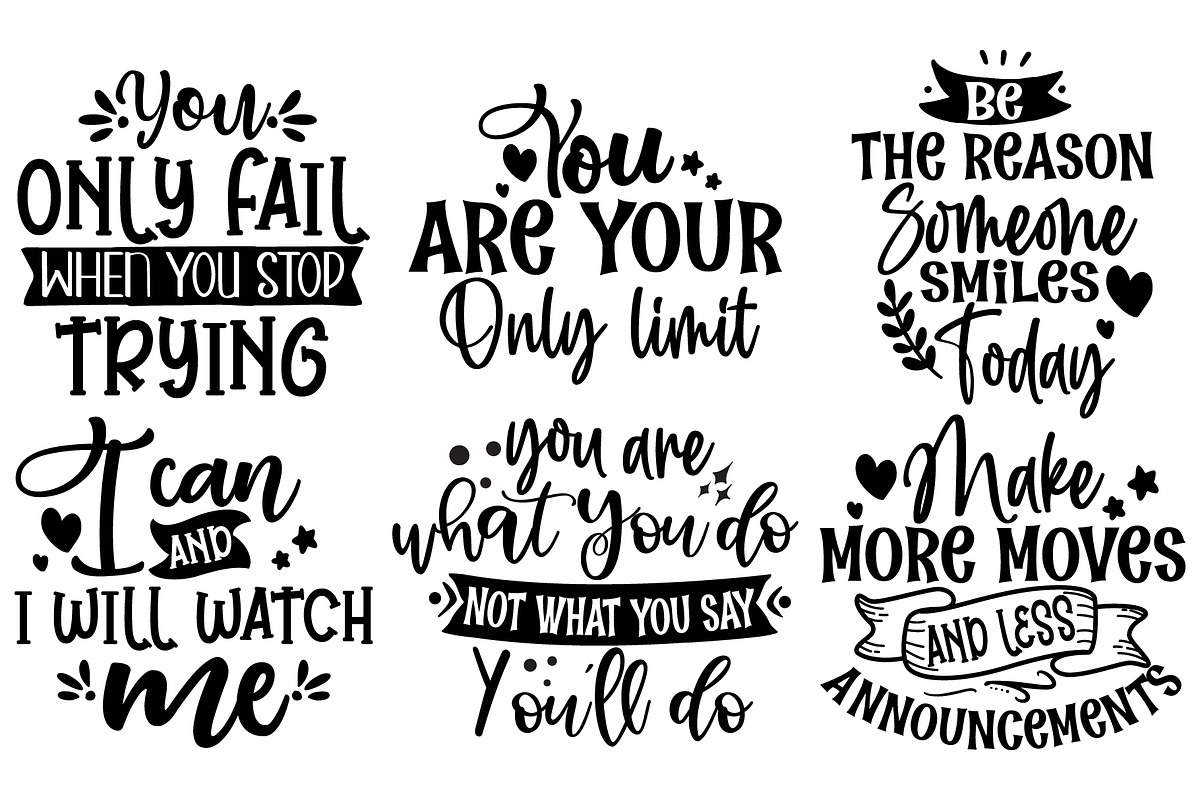 You
ONLY FAIL
WHEN YOU STOP
TRYING
You
ARe YOUR
Only limit
Be
THe ReASON
Someone
SMiLeS
Today
I can
AND
I WILL WATCH
me
you are
what you do
NOT WHAT YOU SAY
You'll do
Make
MORe MOVeS
AND LESS
ANNOUNCeMeNTS